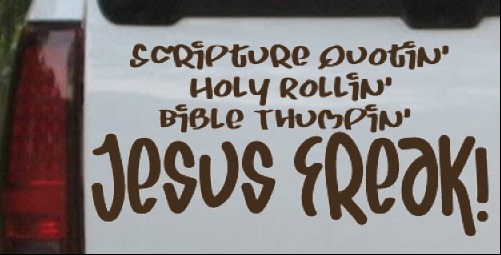 Scripture Quotin'
Holy Rollin'
Bible Thumpin'
Jesus Freak!